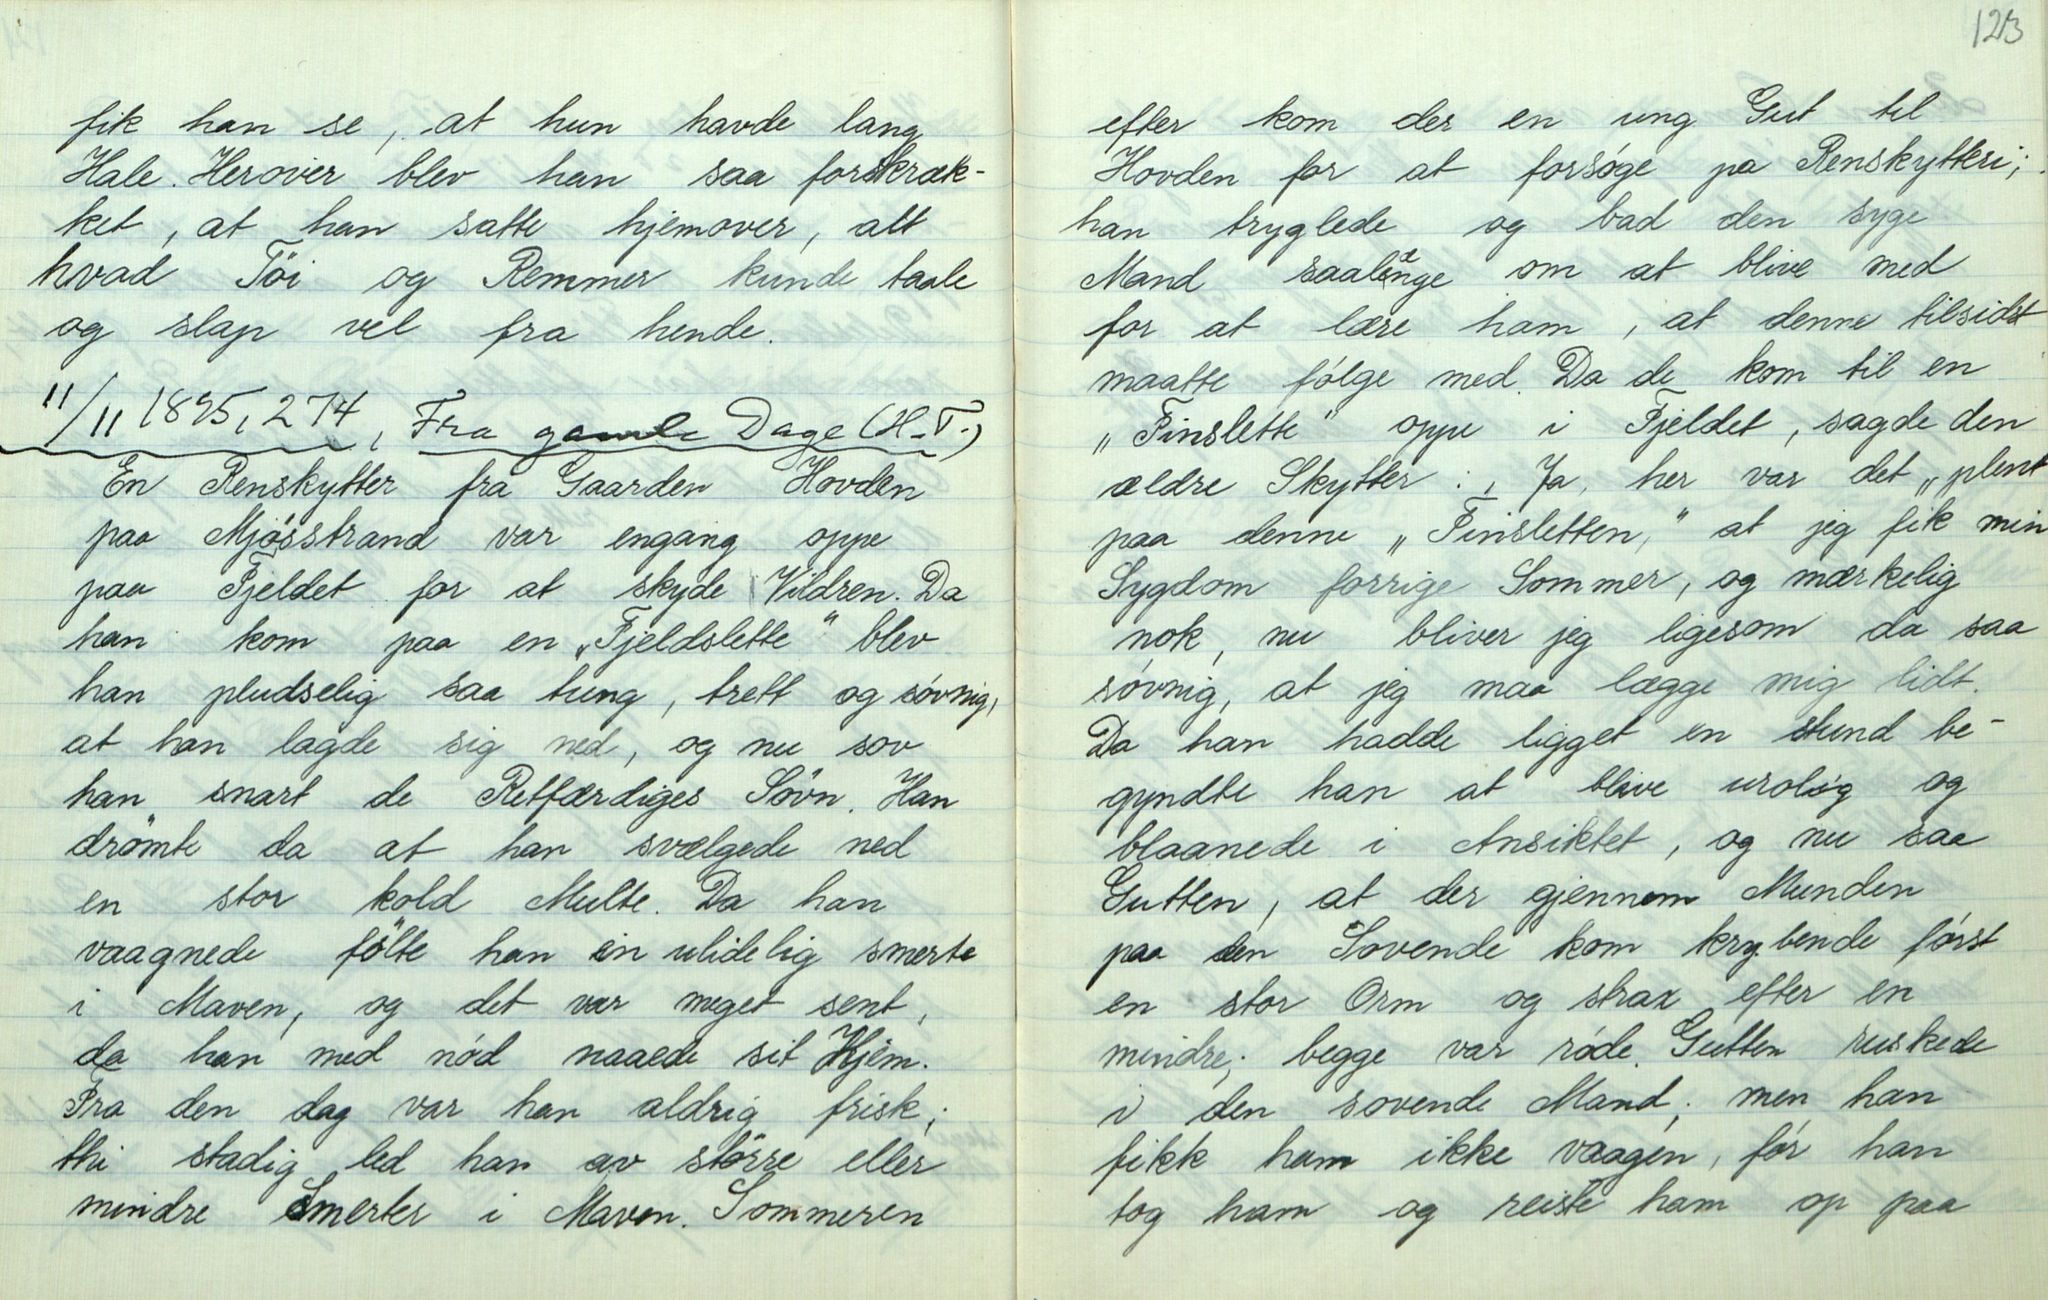 fik han se, at hun havde lang
Hale. Herover blev han saa forskræk-
ket, at han satte hjemover, alt
hvad Töi og Remmer kunde taale
og slap vel fra hende.
11/11 1895, 274, Fra gamle Dage (H.T.)
En Renskytter fra Gaarden Hovden
paa Mjøsstrand var engang oppe
paa Fjeldet for at skyde Vildren. Da
han kom paa en „Fjeldslette" blev
han pludselig saa tung, trett og søvnig,
at han lagde sig ned, og nu sov
han snart de Retfærdiges Søvn. Han
drömte da at han svælgede ned
en stor kold Multe. Da han
vaagnede fölte han en ulidelig smerte
i Maven, og det var meget sent,
da han med nød naaede sit Hjem.
Fra den dag var han aldrig frisk;
thi stadig led han av större eller
mindre Smerter i Maven. Sommeren
123
efter kom der en ung Gut til
Hovden for at forsøge pa Renskytteri;
han tryglede og bad den syge
Mand saalænge om at blive med
for at lære ham, at denne tilsidst
maatte følge med. Da de kom til en
„Finslette" oppe i Fjeldet, sagde den
ældre Skytter: „Ja, her var det „plent
paa denne „Finsletten," at jeg fik min
Sygdom forrige Sommer, og mærkelig
nok, nu bliver jeg ligesom da saa
søvnig, at jeg maa lægge mig lidt.
Da han hadde ligget en stund be-
gyndte han at blive urolig og
blaanede i Ansiktet, og nu saa
Gutten, at der gjennem Munden
paa den Sovende kom krybende først
en stor Orm og strax efter en
mindre; begge var røde. Gutten ruskede
i den sovende Mand; men han
fikk ham ikke vaagen, før han
tog ham og reiste ham op paa